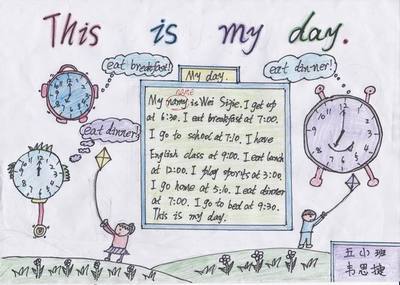 This is my day.
eat breakfast!
eat dinner!
My day.
eat dinner!
name
My namy is Wei Sijie. I get up
at 6:30. I eat breakfast at 7:00.
I go to school at 7:10. I have
English class at 9:00. I eat lunch
at 12:00. I play sports at 3:00.
I go home at 5:10. I eat dinner
at 7:00. I go to bed at 9:30.
This is my day.
五小班
韦思捷